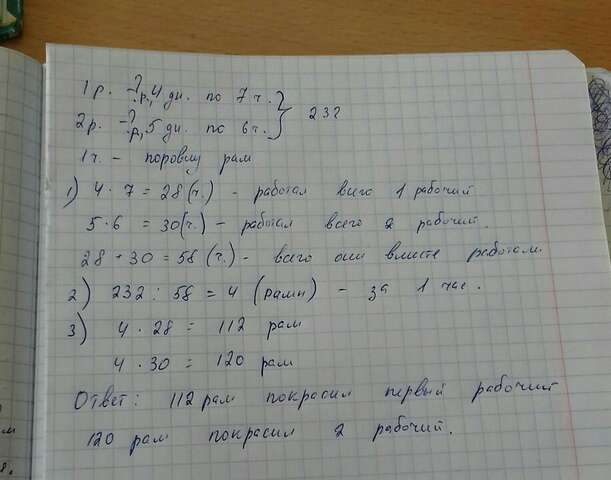 1 р. - ? р, 4 дн. по 7 ч. } 232
2 р. - ? р, 5 дн. по 6 ч.
1 ч. - поровну рам
1) 4 · 7 = 28 (ч.) - работал всего 1 рабочий
5 · 6 = 30 (ч.) - работал всего 2 рабочий.
28 + 30 = 58 (ч.) - всего они вместе работали.
2) 232 : 58 = 4 (рамы) - за 1 час.
3) 4 · 28 = 112 рам
4 · 30 = 120 рам
Ответ: 112 рам покрасил первый рабочий
120 рам покрасил 2 рабочий.